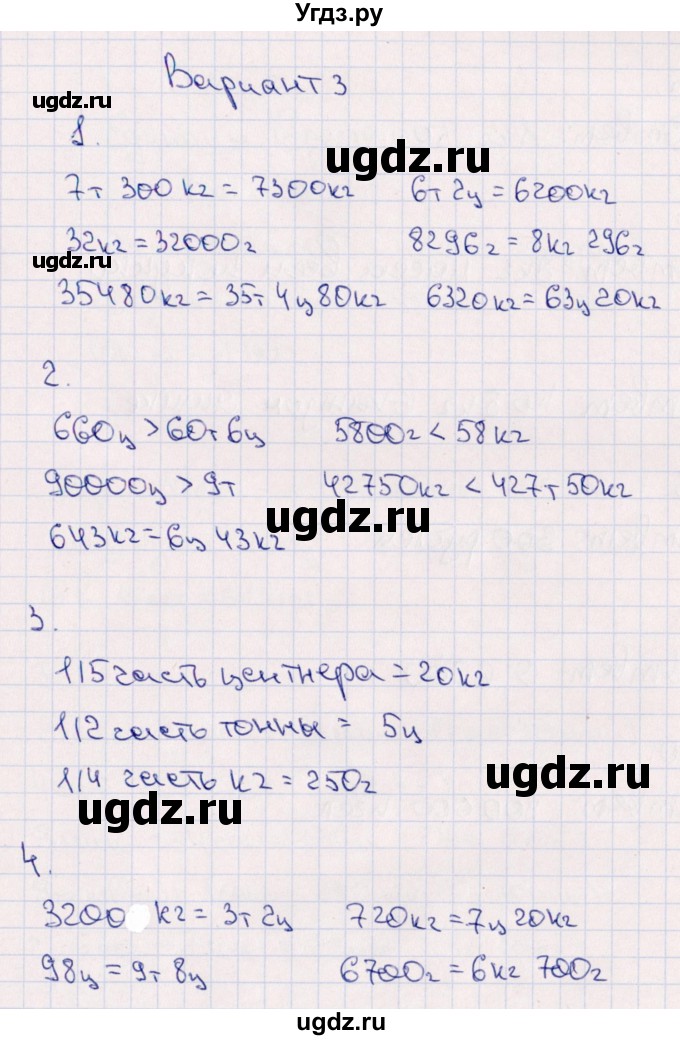 Угдз.ру
Вариант 3
ugdz.ru
1.
ugdz.ru
7т 300кг = 7300кг 6т 2ц = 6200кг
32кг = 32000г 8296г = 8кг 296г
ugdz.ru
35480кг = 35т 4ц 80кг 6320кг = 63ц 20кг
2.
660ц > 60т 6ц 5800г < 58кг
90000ц > 9т 42750кг < 427т 50кг
ugdz.ru
643кг = 6ц 43кг
3.
1/5 часть центнера = 20кг
1/2 часть тонны = 5ц
1/4 часть кг = 250г
ugdz.ru
ugdz.ru
4.
3200 кг = 3т 2ц 720кг = 7ц 20кг
98ц = 9т 8ц 6700г = 6кг 700г
ugdz.ru